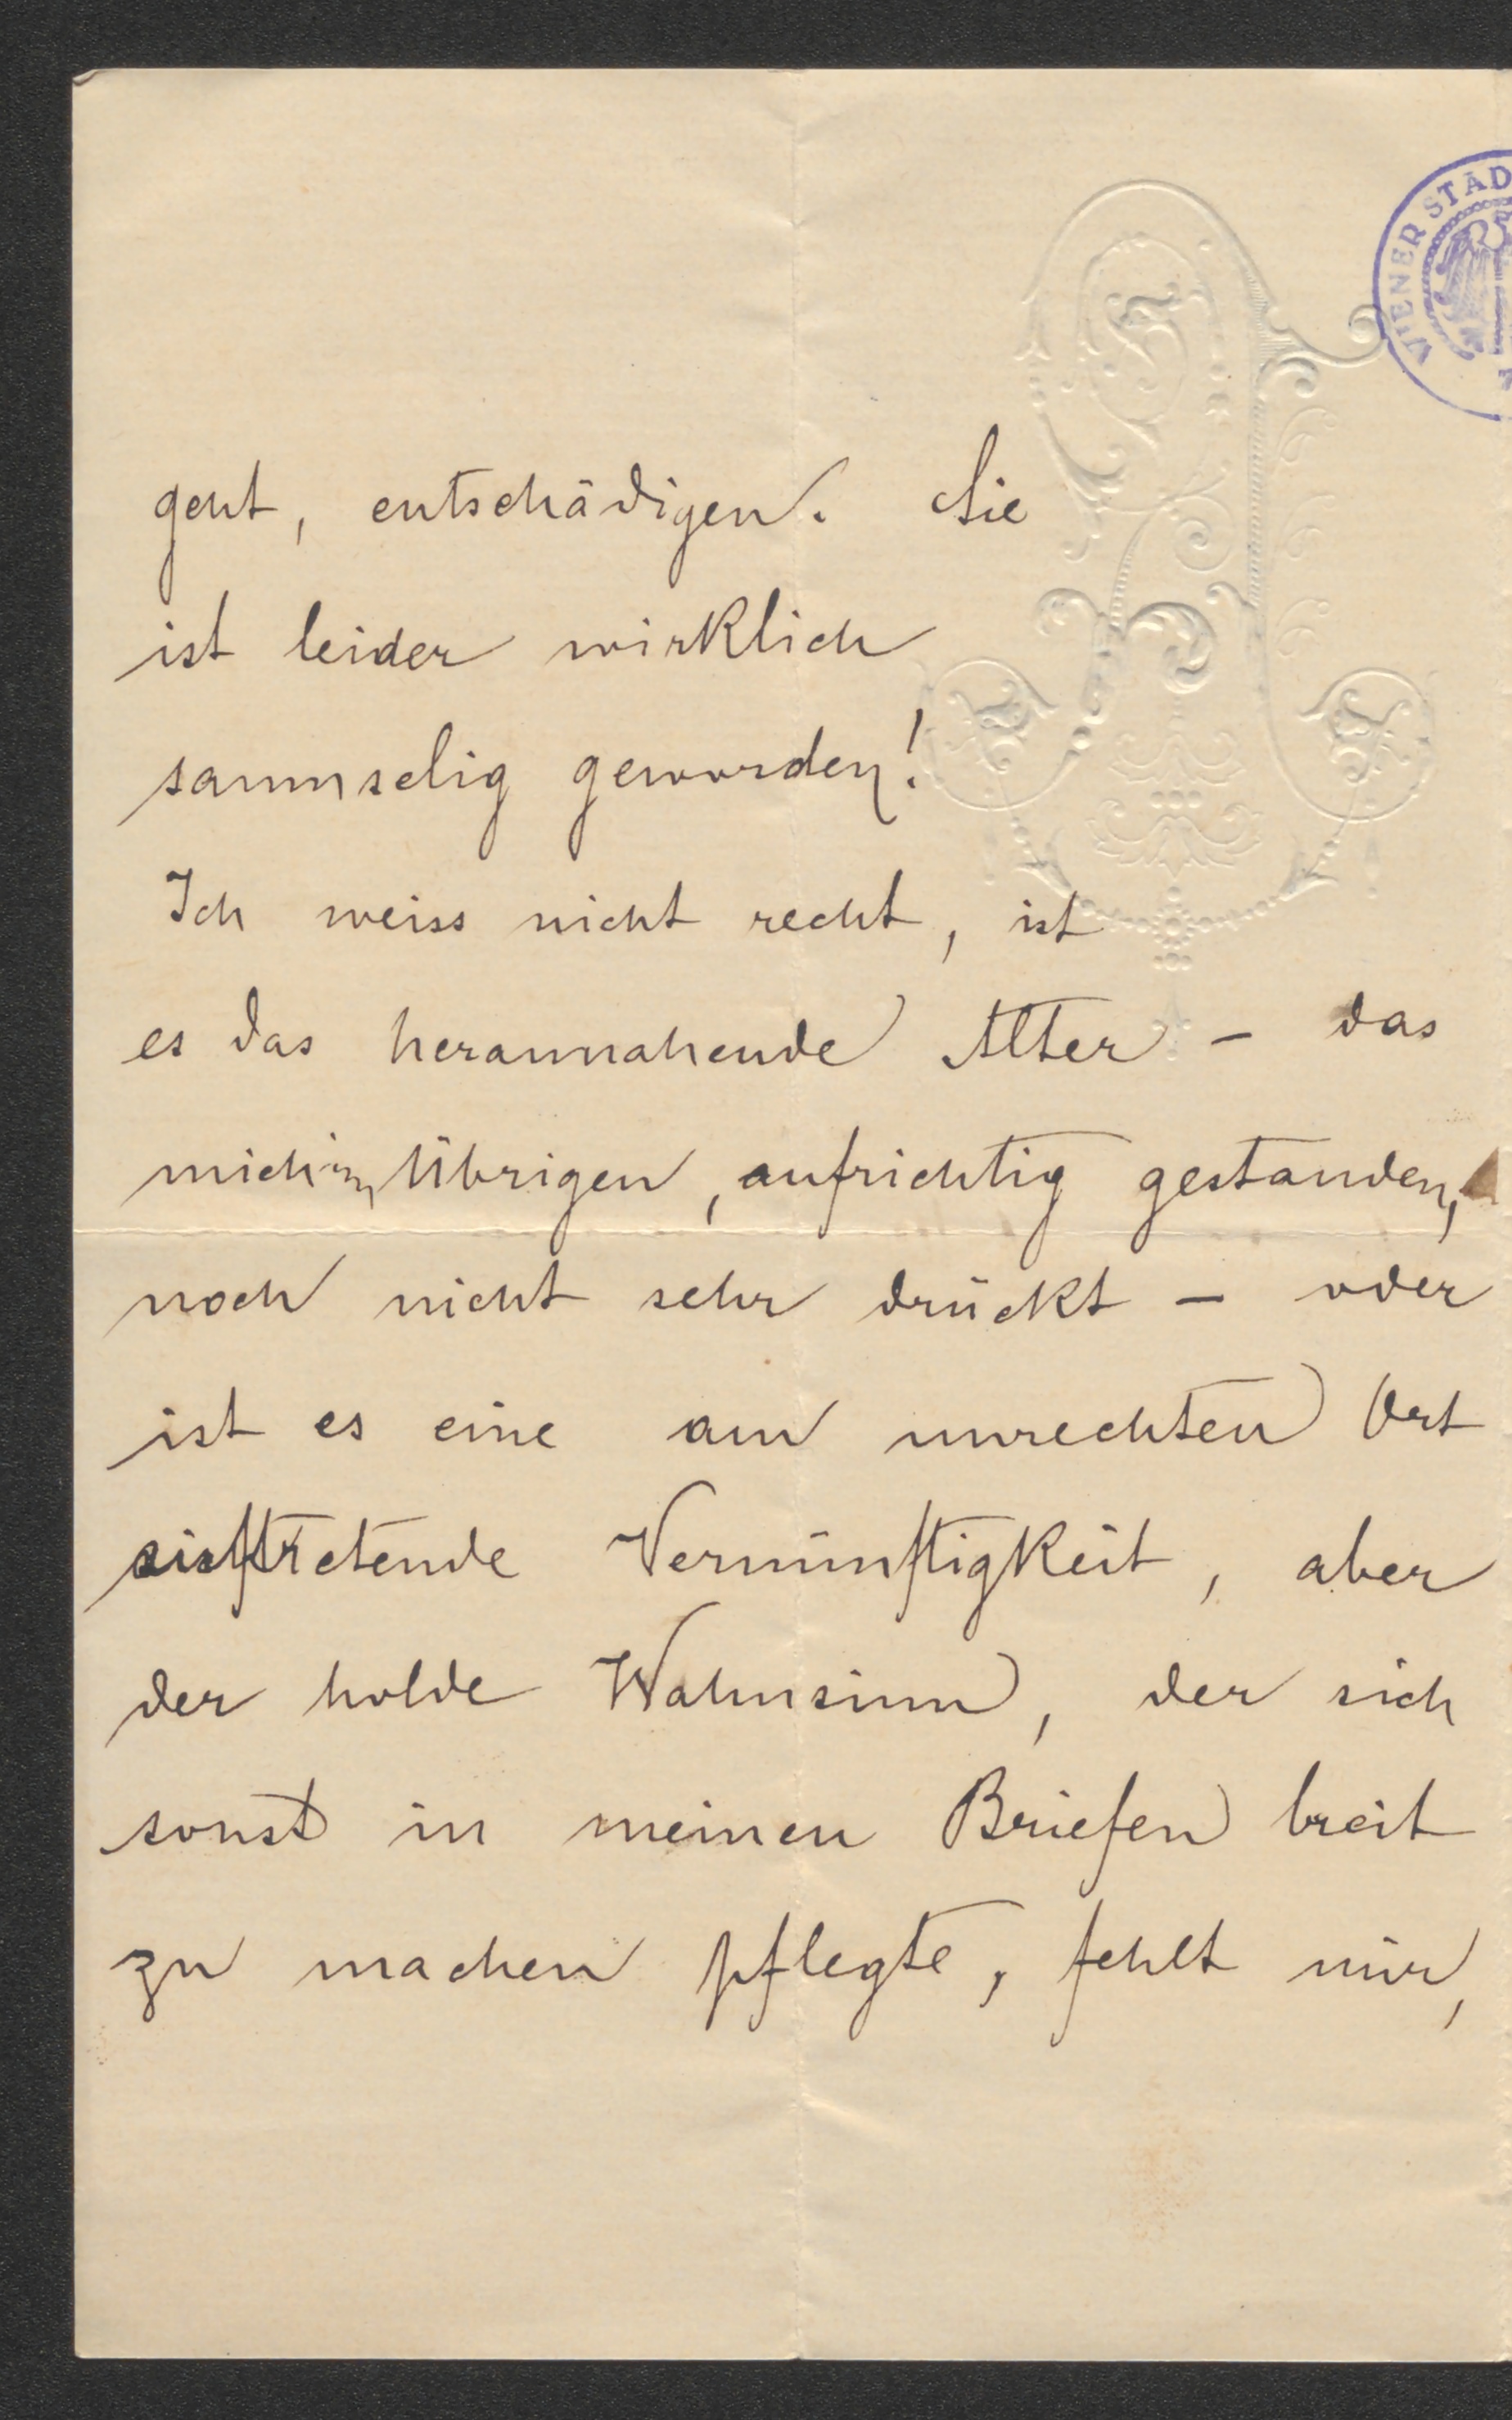 WIENER STAD
geht, entschädigen. Sie
ist leider wirklich
saumselig geworden!
Ich weiss nicht recht, ist
es das herannahende Alter – das
mich im Übrigen, aufrichtig gestanden,
noch nicht sehr drückt – oder
ist es eine am unrechten Ort
Vernünftigkeit, aber
der holde Wahnsinn, der sich
sonst in meinen Briefen breit
zu machen pflegte, fehlt mir,